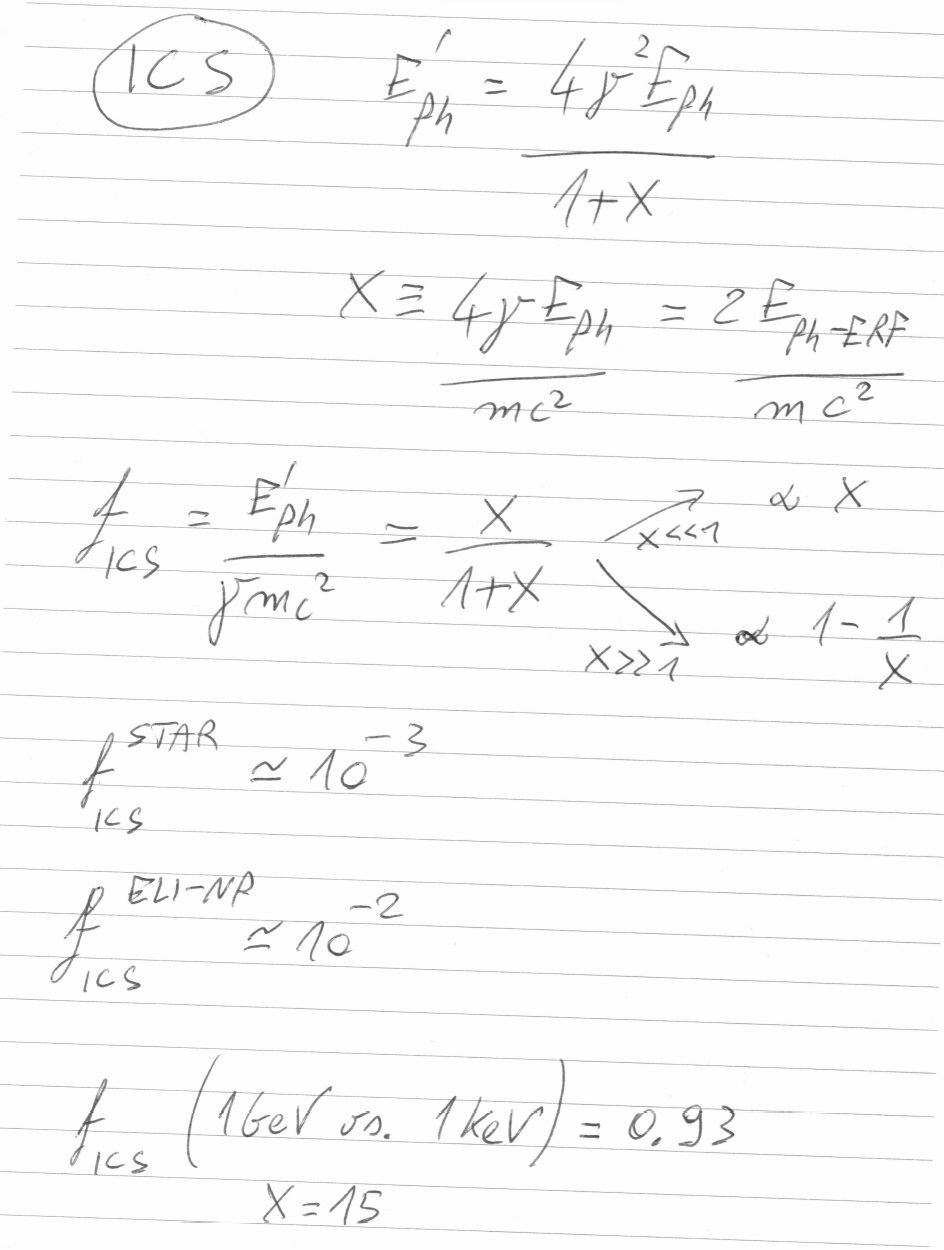 ICS E'ph = 4γ²Eph / 1+X
X ≡ 4γEph / mc² = 2Eph-ERF / mc²
fICS = E'ph / γmc² = X / 1+X ↗ X<<1 ∝ X
↘ X>>1 ∝ 1 - 1/X
fICS^STAR ≃ 10⁻³
fICS^ELI-NP ≃ 10⁻²
fICS (1GeV vs. 1keV) = 0.93
X = 15